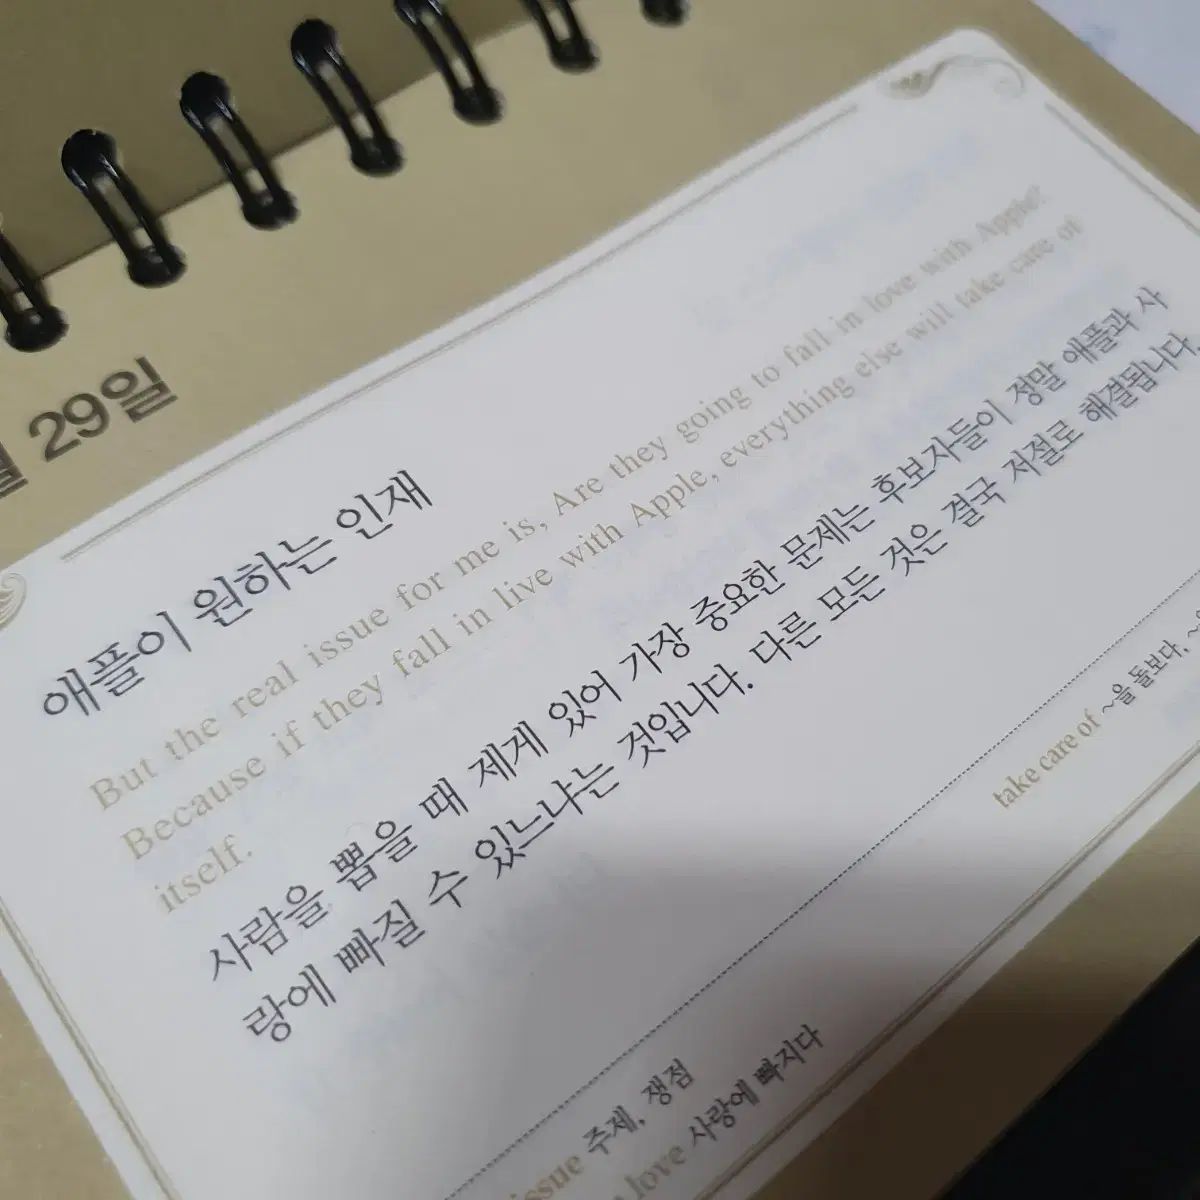 29일
애플이 원하는 인재
But the real issue for me is, Are they going to fall in love with Apple?
Because if they fall in live with Apple, everything else will take care of
itself.
사람을 뽑을 때 제게 있어 가장 중요한 문제는 후보자들이 정말 애플과 사
랑에 빠질 수 있느냐는 것입니다. 다른 모든 것은 결국 저절로 해결됩니다.
issue 주제, 쟁점
take care of ~을 돌보다,
love 사랑에 빠지다